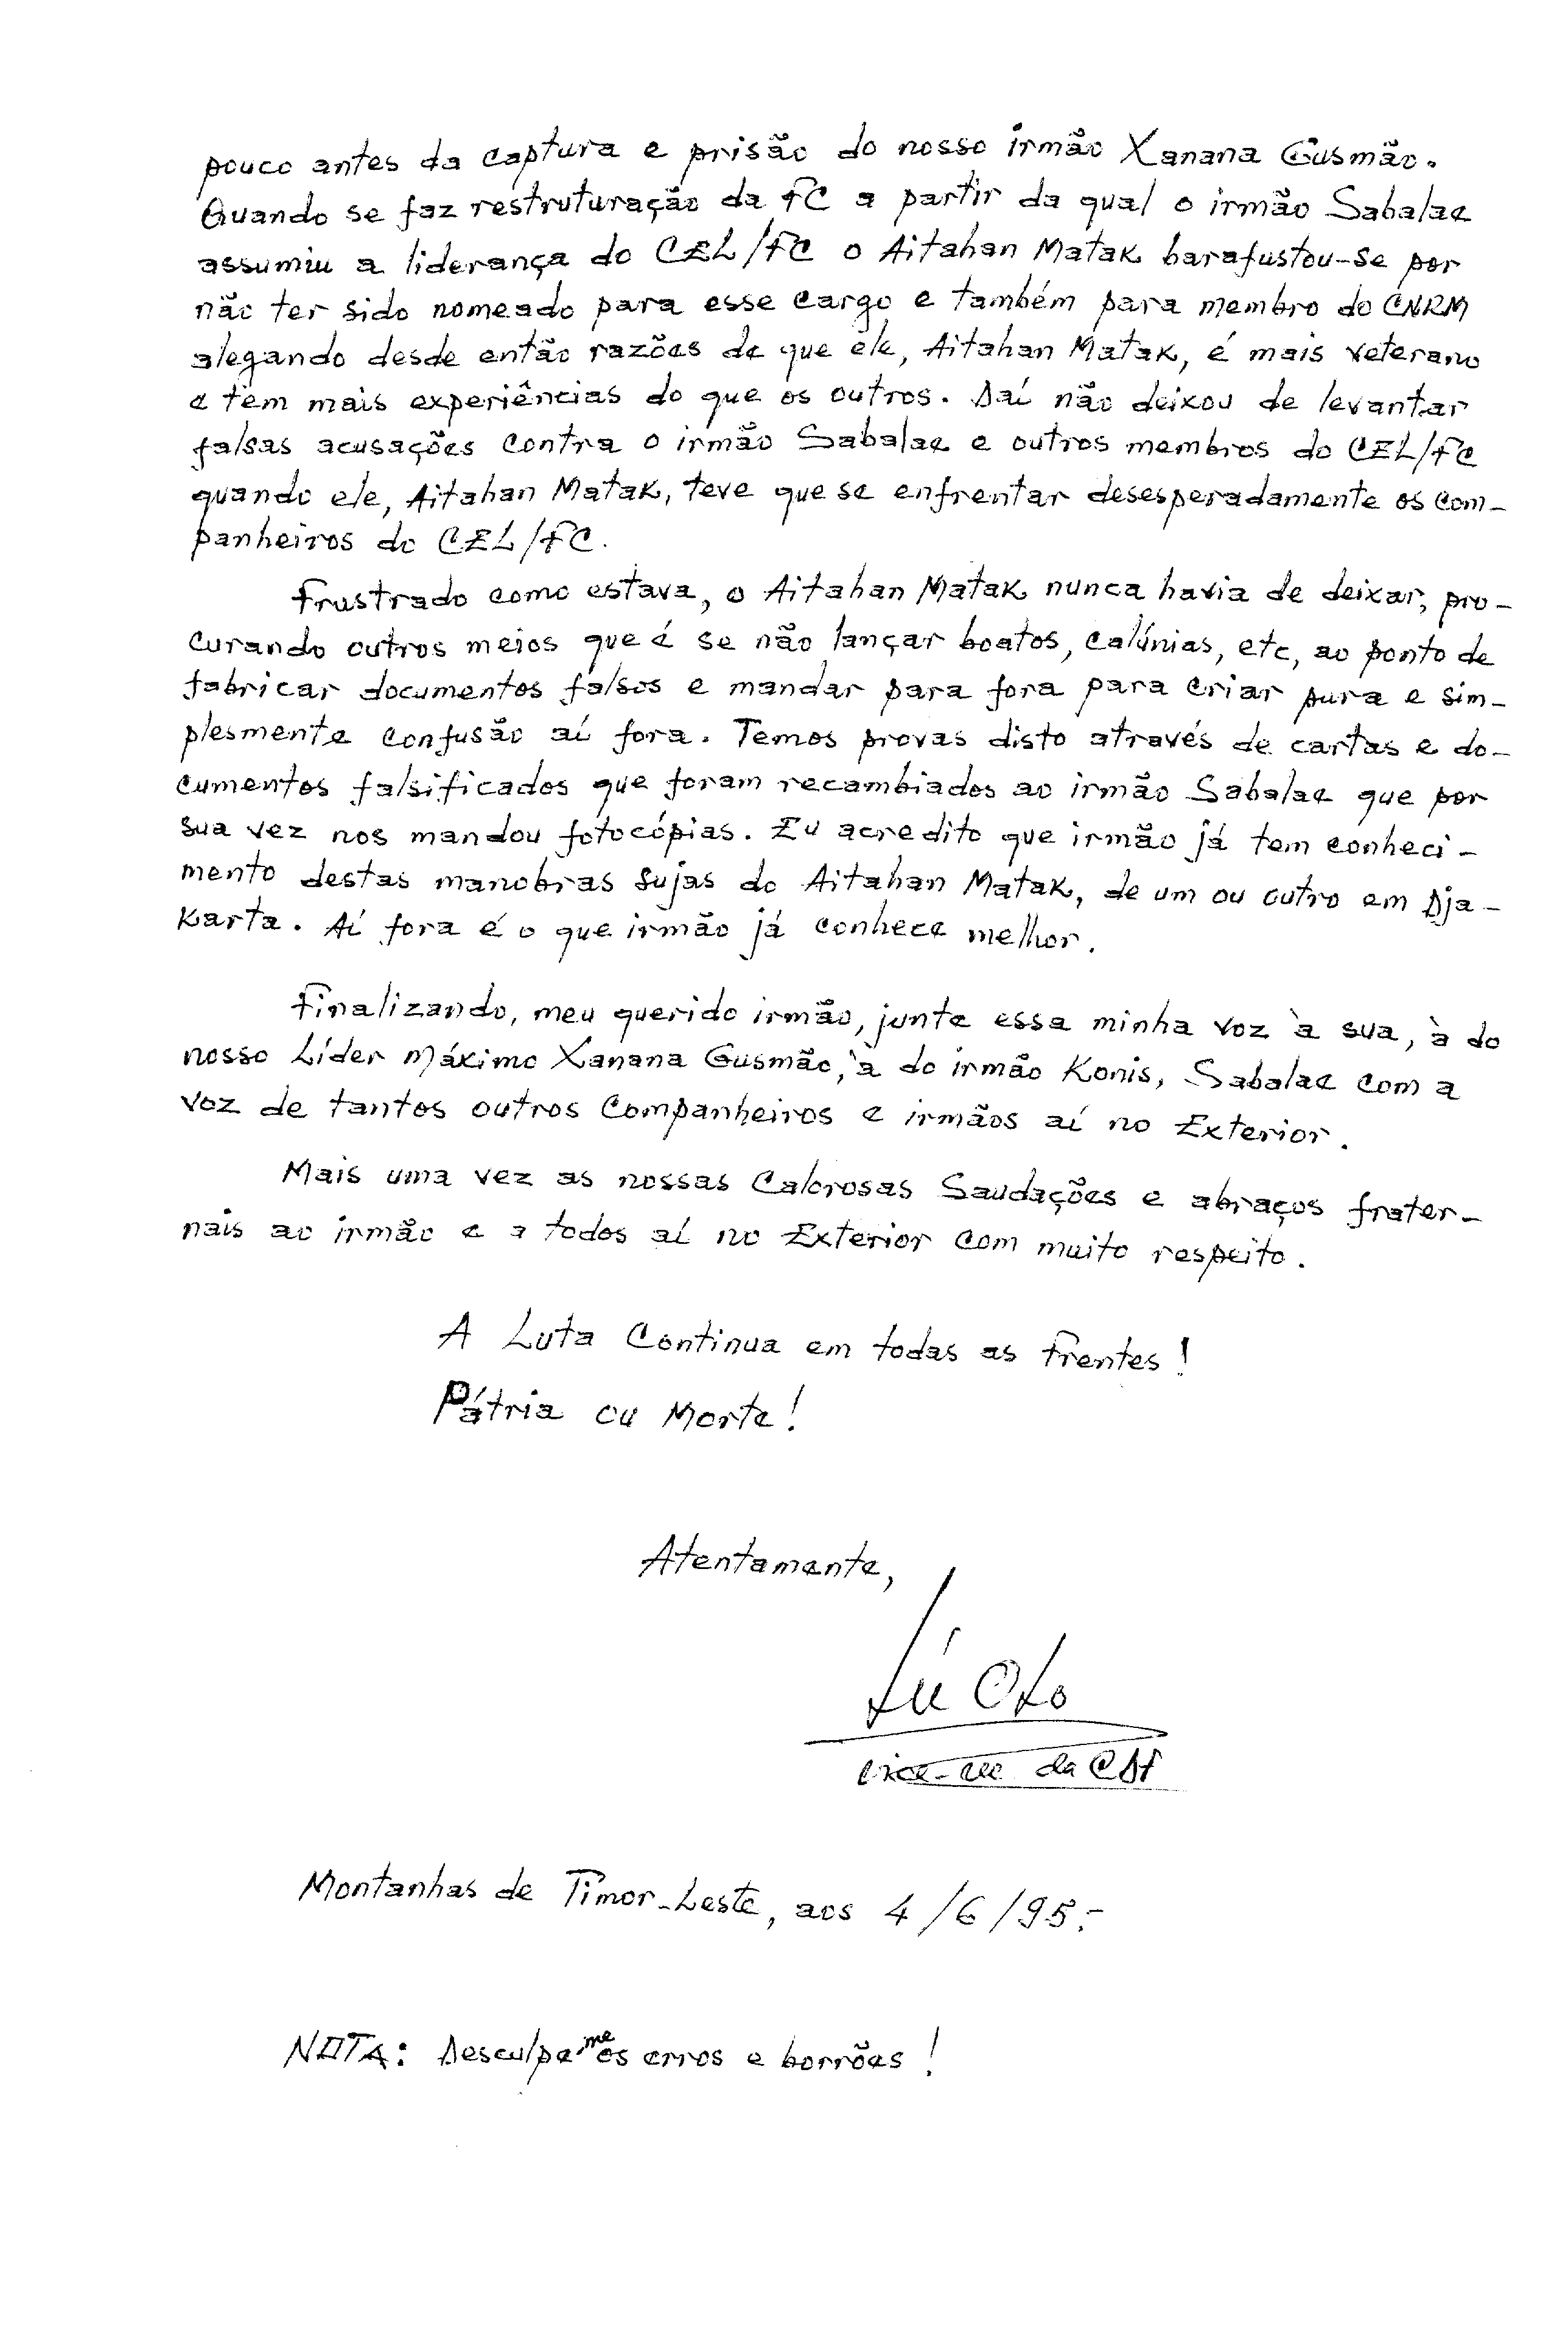 pouco antes da captura e prisão do nosso irmão Xanana Gusmão.
Quando se faz restruturação da FC a partir da qual o irmão Sabalae
assumiu a liderança do CEL/FC o Aitahan Matak barafustou-se por
não ter sido nomeado para esse cargo e também para membro do CNRM
alegando desde então razões de que ele, Aitahan Matak, é mais veterano
e tem mais experiências do que os outros. Daí não deixou de levantar
falsas acusações contra o irmão Sabalae e outros membros do CEL/FC
quando ele, Aitahan Matak, teve que se enfrentar desesperadamente os com-
panheiros do CEL/FC.
Frustrado como estava, o Aitahan Matak nunca havia de deixar, pro-
curando outros meios que é se não lançar boatos, calúnias, etc, ao ponto de
fabricar documentos falsos e mandar para fora para criar pura e sim-
plesmente confusão aí fora. Temos provas disto através de cartas e do-
cumentos falsificados que foram recambiados ao irmão Sabalae que por
sua vez nos mandou fotocópias. Eu acredito que irmão já tem conheci-
mento destas manobras sujas do Aitahan Matak, de um ou outro em Dja-
karta. Aí fora é o que irmão já conhece melhor.
Finalizando, meu querido irmão, junte essa minha voz à sua, à do
nosso Líder Máximo Xanana Gusmão, à do irmão Konis, Sabalae com a
voz de tantos outros Companheiros e irmãos aí no Exterior.
Mais uma vez as nossas Calorosas Saudações e abraços frater-
nais ao irmão e a todos aí no Exterior com muito respeito.
A Luta Continua em todas as Frentes!
Pátria ou Morte!
Atentamente,
Lú Olo
da CDF
Montanhas de Timor-Leste, aos 4/6/95.-
NOTA: Desculpe me os erros e borrões!